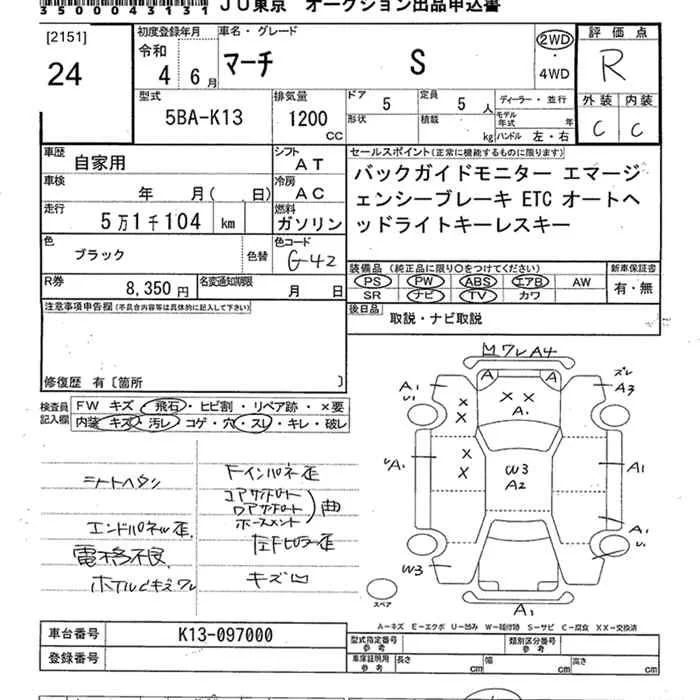 350043131 JU東京 オークション出品申込書
[2151]
24
初度登録年月
令和 4年 6月
車名・グレード
マーチ S
2WD
・4WD
評価点
R
外装 内装
C C
型式
5BA-K13
排気量
1200 CC
ドア 5 定員 5 人
形状 積載 kg
ディーラー・並行
モデル年式 年
ハンドル 左・右
車歴 自家用
シフト AT
車検 年 月( 日)
冷房 AC
走行 5万1千104 km
燃料 ガソリン
色 ブラック 色替
色コード G42
R券 8,350円
名変通知期限 月 日
セールスポイント(正常に機能するものに限ります)
バックガイドモニター エマージ
ェンシーブレーキ ETC オートヘ
ッドライトキーレスキー
装備品 (純正品に限り○をつけてください)
PS PW ABS エアB AW
SR ナビ TV カワ
新車保証書
有・無
後日品
取説・ナビ取説
注意事項申告欄(不具合内容等は具体的に記入して下さい)
修復歴 有〔箇所 〕
検査員記入欄
FW キズ・飛石・ヒビ割・リペア跡・×要
内装 キズ・汚レ・コゲ・穴・スレ・キレ・破レ
シートヘタリ
エンドパネル歪
電格不良
FインパネE歪
コアサポート
ロアサポート
ホースメント
曲
左Fピラー歪
キズ凹
MワレA4
A1
A A
ズレ
A3
× × ×
A1
×
A1
×
×
W3
A2
A1
A1
W3
A1
スペア
A-キズ E-エクボ U-凹み W-補修跡 S-サビ C-腐食 XX-交換済
車台番号 K13-097000
登録番号
型式指定番号 参考
類別区分番号 参考
車庫証明用 参考
長さ cm 幅 cm 高さ cm
[2151]